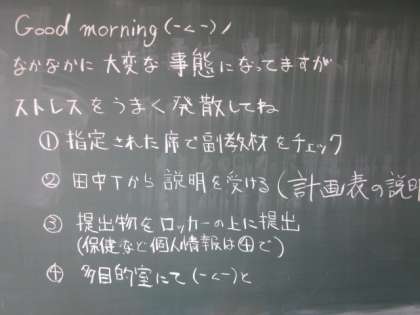 Good morning (-＜-)ノ
なかなかに大変な事態になってますが
ストレスをうまく発散してね
① 指定された席で副教材をチェック
② 田中Tから説明を受ける(計画表の説明
③ 提出物をロッカーの上に提出
(保健など個人情報は④で)
④ 多目的室にて(-＜-)と